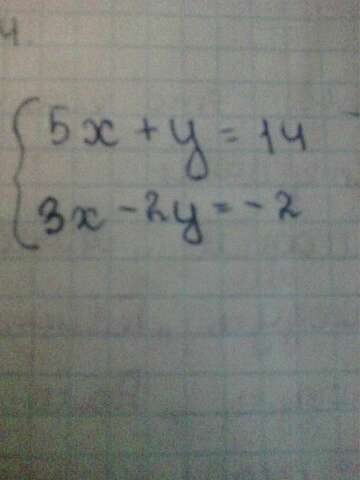 4.
5x + y = 14
3x - 2y = - 2